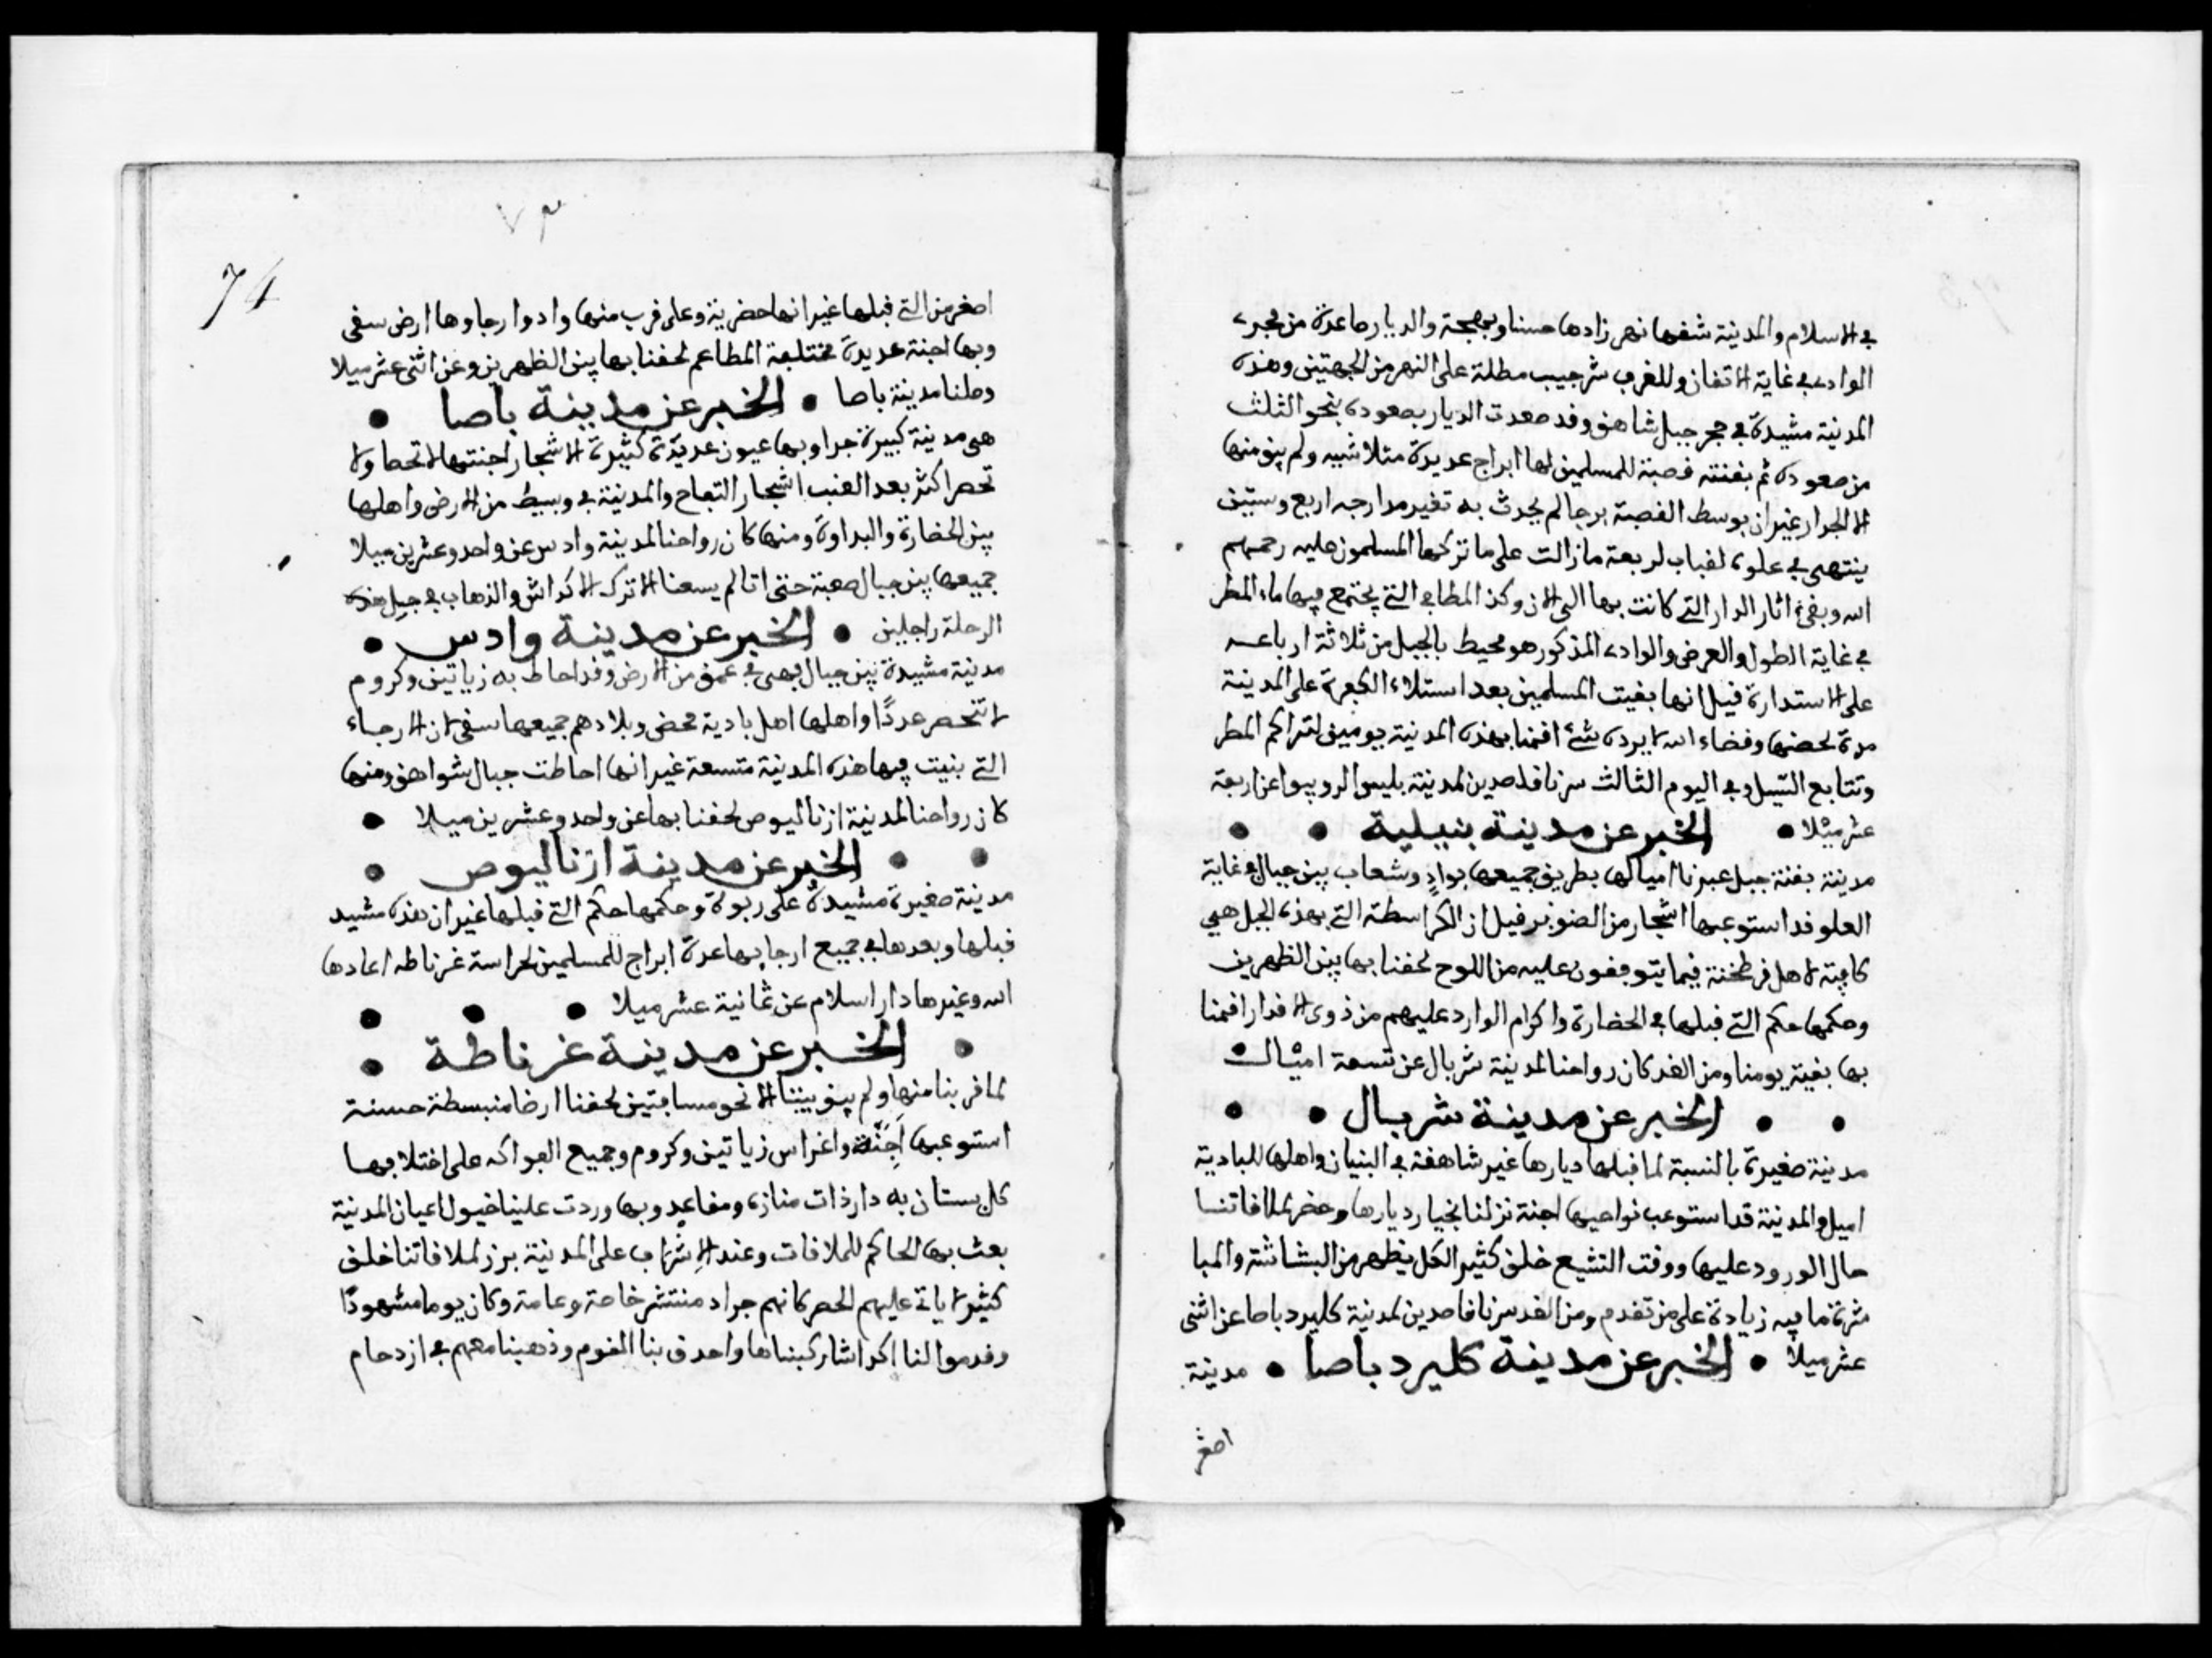 في الاسلام والمدينة شقها نهر زادها حسنا وبهجة والديار صاعدة من مجرى
الوادي في غاية الاتقان وللغرب شرجيب مطلة على النهر من الجهتين وهذه
المدينة مشيدة في حجر جبل شاهق وقد صعدت الديار بصعوده بنحو الثلث
من صعوده ثم بقنته قصبة للمسلمين لها ابراج عديدة مثلاشيه ولم يبق منها
الا الجدار غير ان بوسط القصبة برجا لم يحدث به تغير مدارجه اربع وستين
ينتهي في علوه لقباب اربعة ما زالت على ما تركها المسلمون عليه رحمهم
الله وبقي اثار الدار التي كانت بها الى الان وكذ المطافي التي يجتمع فيها ماء المطر
في غاية الطول والعرض والوادي المذكور هو محيط بالجبل من ثلاثة ارباعه
على الاستدارة قيل انها بقيت المسلمين بعد استلاء الكفرة على المدينة
مدة لحصنها وقضاء الله لا يرده شئ اقمنا بهذه المدينة يومين لتراكم المطر
وتتابع السيل وفي اليوم الثالث سرنا قاصدين لمدينة بليس الروبيوا عن اربعة
عشر ميلا • الخبر عن مدينة بنبلية • •
مدينة بقنة جبل عبرنا اميالها بطريق جميعها بواد وشعاب بين جبال في غاية
العلو قد استوعبها اشجار من الصنوبر قيل ان الكراسطة التي بهذه الجبل هي
كافية لاهل قرطخنة فيما يتوقفون عليه من اللوح لحقنا بها بين الظهرين
وحكمها حكم التي قبلها في الحضارة واكرام الوارد عليهم من ذوي الاقدار اقمنا
بها بقية يومنا ومن الغد كان رواحنا لمدينة شربال عن تسعة اميال
• • الخبر عن مدينة شربال • •
مدينة صغيرة بالنسبة لما قبلها ديارها غير شاهقة في البنيان واهلها للبادية
اميل والمدينة قد استوعب نواحيها اجنة نزلنا بخيار ديارها وحضر لملاقاتنا
حال الورود عليها ووقت التشيع خلق كثير الكل يظهر من البشاشة والمبا
شرة ما فيه زيادة على من تقدم ومن الغد سرنا قاصدين لمدينة كليرد باصا عن اثنى
عشر ميلا • الخبر عن مدينة كليرد باصا • مدينة
اصغر
٧٣
74
اصغر من التي قبلها غير انها حضرية وعلى قرب منها واد وارجاوها ارض سقى
وبها اجنة عديدة مختلفة المطاعم لحقنا بها بين الظهرين وعن اثنى عشر ميلا
وصلنا مدينة باصا • الخبر عن مدينة باصا •
هي مدينة كبيرة جدا وبها عيون عديدة كثيرة الاشجار اجنتها لا تحصا ولا
تحصر اكثر بعد العنب اشجار التفاح والمدينة في وسيط من الارض واهلها
بين الحضارة والبداوة ومنها كان رواحنا لمدينة وادس عن واحد وعشرين ميلا
جميعها بين جبال صعبة حتى اننا لم يسعنا الا ترك الاكداش والذهاب في جبل هذه
الرحلة راجلين • الخبر عن مدينة وادس •
مدينة مشيدة بين جبال فهي في عمق من الارض وقد احاط به زياتين وكروم
لا تنحصر عددًا واهلها اهل بادية محض وبلادهم جميعها سقى لان الارجاء
التي بنيت فيها هذه المدينة متسعة غير انها احاطت جبال شواهق ومنها
كان رواحنا لمدينة ازناليوص لحقنا بها عن واحد وعشرين ميلا •
• • الخبر عن مدينة ازناليوص •
مدينة صغيرة مشيدة على ربوة وحكمها حكم التي قبلها غير ان هذه مشيد
قبلها وبعدها في جميع ارجايها عدة ابراج للمسلمين لحراسة غرناطه اعادها
الله وغيرها دار اسلام عن ثمانية عشر ميلا • • •
• الخبر عن مدينة غرناطة •
لما قربنا منها ولم يبق بيننا الا نحو مسافتين لحقنا ارضا منبسطة حسنة
استوعبها اَجِنَّة واغراس زياتين وكروم وجميع الفواكه على اختلافها
كل بستان به دار ذات منازه ومقاعد وبها وردت علينا خيول اعيان المدينة
بعث بها الحاكم للملاقات وعند الاشراف على المدينة برز لملاقاتنا خلق
كثير لا ياتي عليهم الحصر كانهم جراد منتشر خاصة وعامة وكان يوما مشهودًا
وقدموا لنا اكداشا ركبناها واحدق بنا القوم وذهبنا معهم في ازدحام